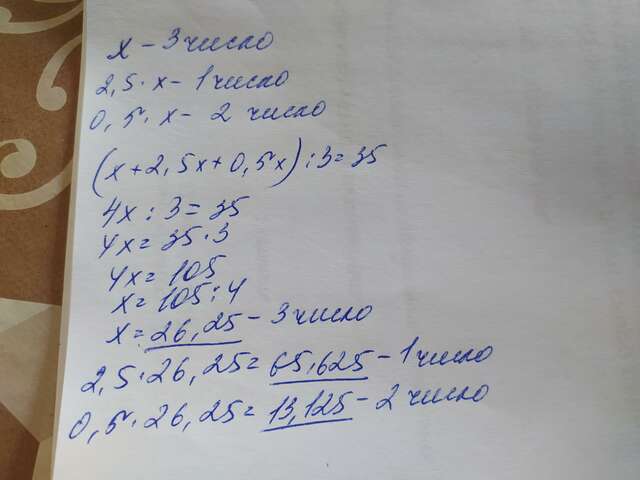 x – 3 число
2,5 · x – 1 число
0,5 · x – 2 число
(x + 2,5x + 0,5x) : 3 = 35
4x : 3 = 35
4x = 35 · 3
4x = 105
x = 105 : 4
x = 26,25 – 3 число
2,5 · 26,25 = 65,625 – 1 число
0,5 · 26,25 = 13,125 – 2 число